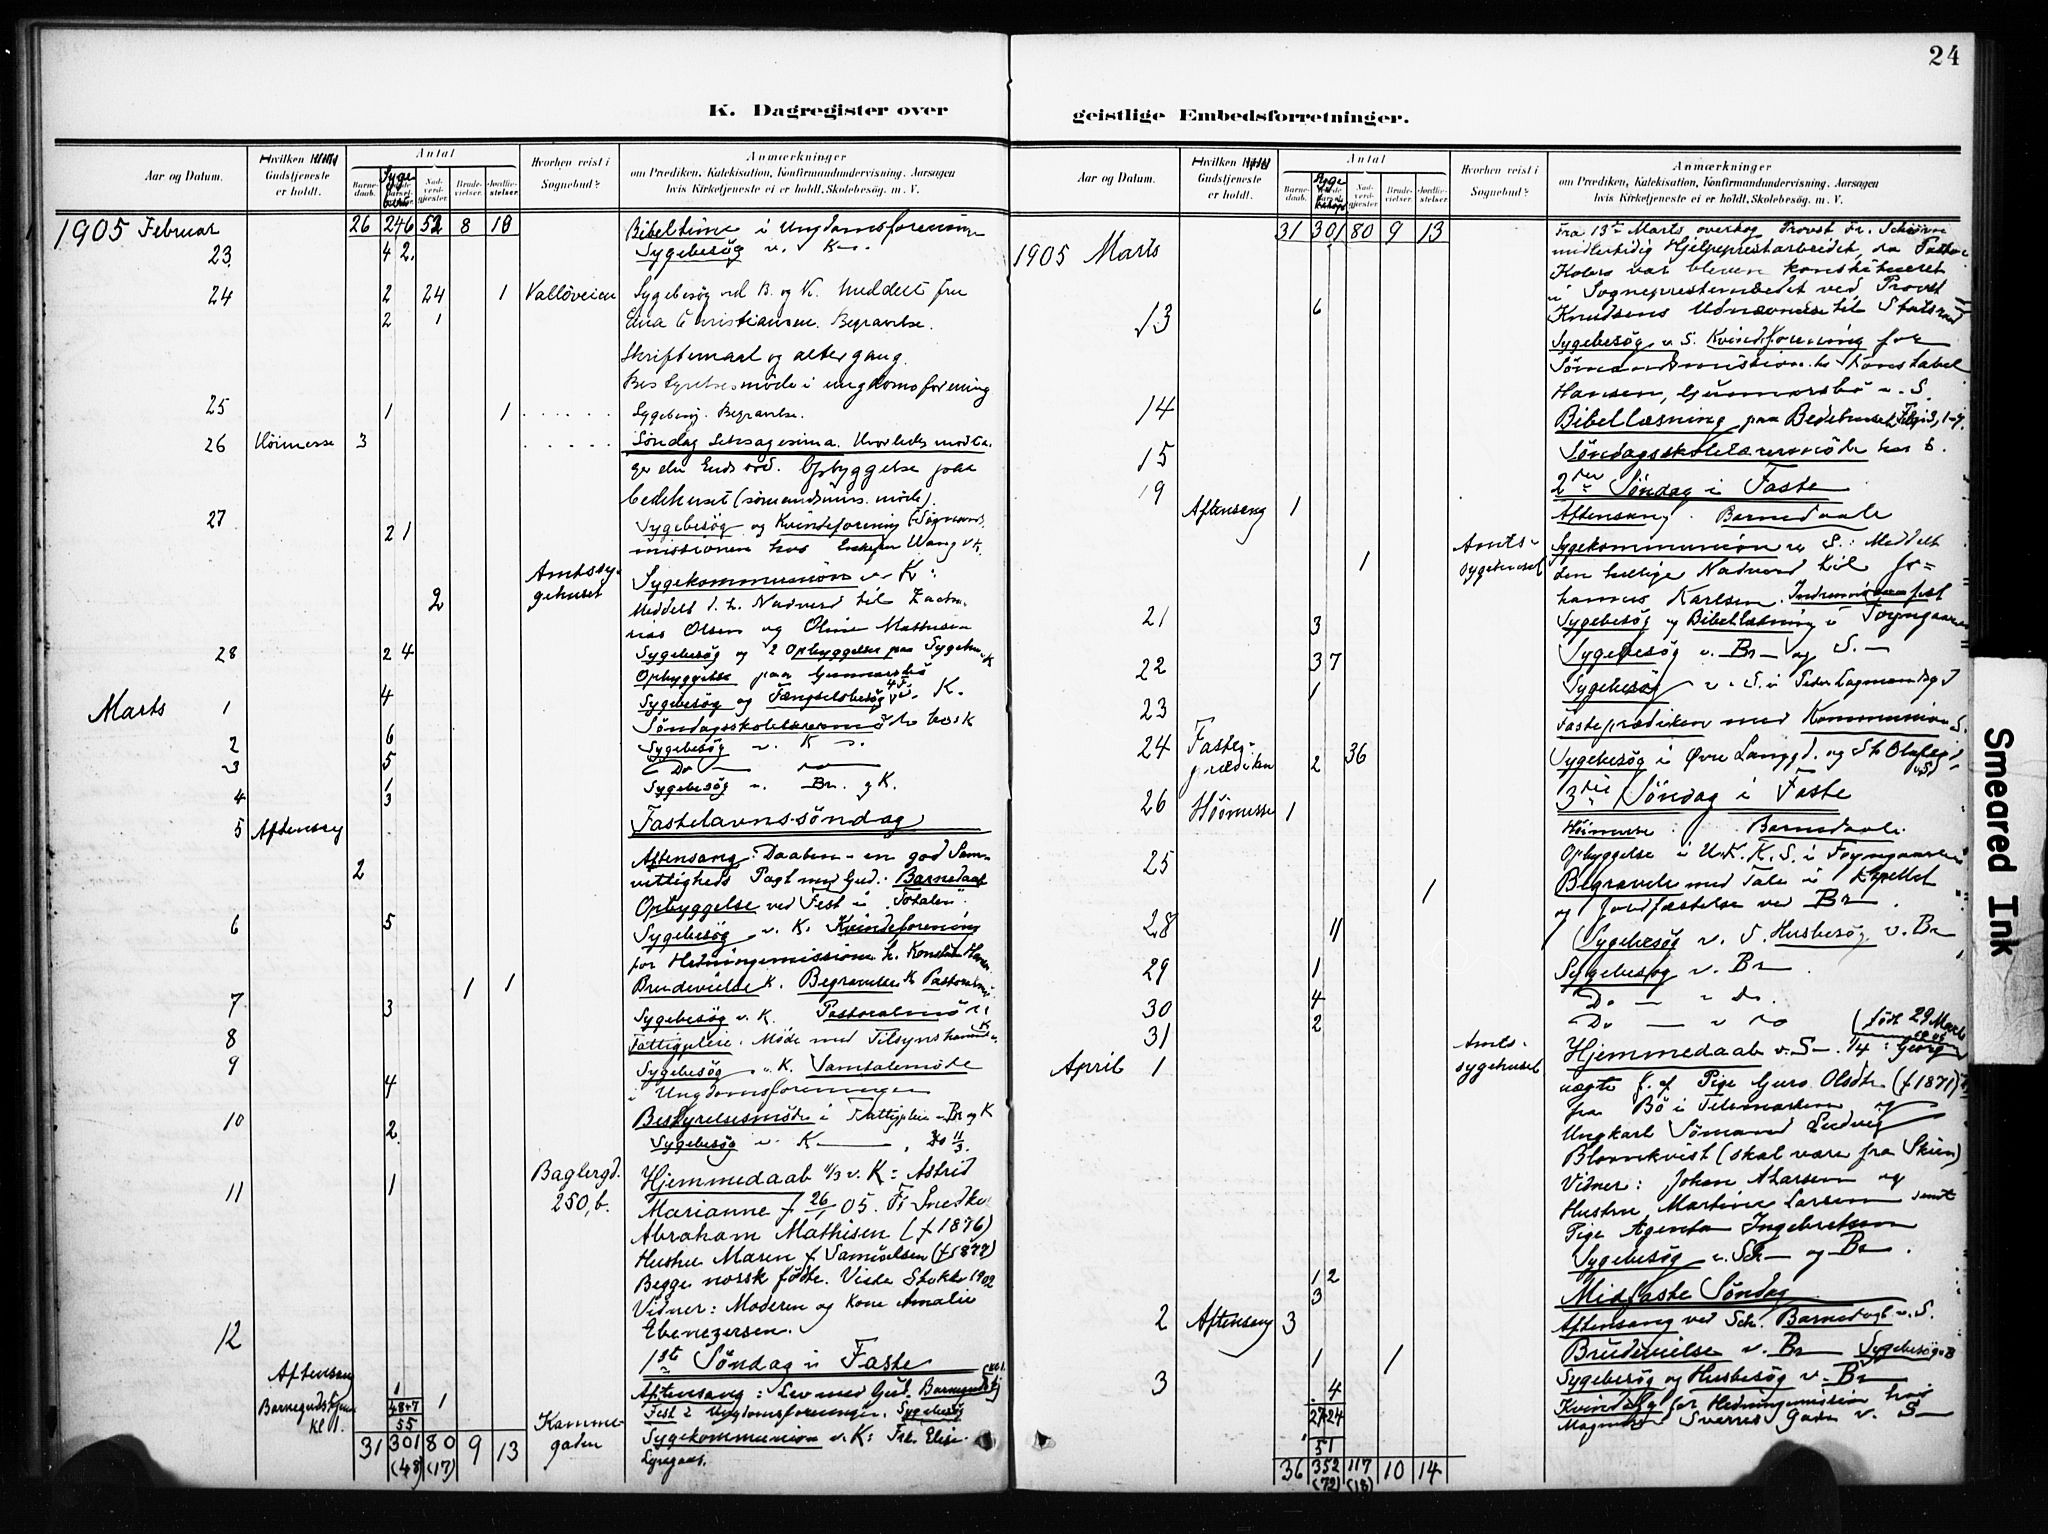 24
K. Dagregister over
geistlige Embedsforretninger.
Aar og Datum.
Hvilken
Gudstjeneste
er holdt.
Antal
Barne-
daab.
Syge
besøg
Nad-
verd-
gjester
Brude-
vielser.
Jordfæ-
stelser.
Hvorhen reist i
Sognebud?
Anmærkninger
om Prædiken, Katekisation, Konfirmandundervisning. Aarsagen
hvis Kirketjeneste ei er holdt. Skolebesøg. m. V.
1905 Februar 26 246 52 8 10 Bibeltime i Ungdomsforening
23. 4 2. Sygebesøg v. K—.
24 2 24 1 Valløveien Sygebesøg ved B. og K. Meddelt fru
2 1 Christiansen. Begravelse.
Skriftemaal og altergang.
Bestyrelsesmøde i ungdomsforening
25 1 1 Sygebesøg. Begravelse.
26 Høimesse 3 Søndag Sexagesima. Hvorledes modta-
ger du Guds ord. Opbyggelse paa
bedehuset (sømandsmis. møde).
27 2 1 Sygebesøg og Kvindeforening
missionen hos Wang v K.
Amtssy-
gehuset
Sygekommunion v K:
2 Meddelt d. h. Nadverd til Zacha-
rias Olsen og Oline Mathisen
28 2 4 Sygebesøg og 2 Opbyggelser paa Sygehu. K
Opbyggelse paa Gunnarsbø
Marts 1 4 Sygebesøg og Fængselsbesøg v. K.
Søndagsskolelærermøde hos K
2 6 Sygebesøg v. K
3 5 Do
4 1 3 Sygebesøg v. Br. og K.
5 Aftensang Fastelavnssøndag
2 Aftensang: Daaben - en god Sam-
vittigheds Pagt med Gud. Barnedaab
Opbyggelse ved Fest i "Totalen".
6 5 Sygebesøg v. K. Kvindeforening
for Hedningemissionen h.
1 1 Brudevielse K. Begravelse K
7 3 Sygebesøg v. K. Pastoralmøde
8 Fattigpleie. Møde med Tilsyns
9 4 Sygebesøg v. K. Samtalemøde
i Ungdomsforeningen
10 Bestyrelsesmøde i Fattigpleie v Br og K
2 Sygebesøg v. K— Do 11/3.
11 1 Baglergd.
250, b.
Hjemmedaab 11/3 v. K: Astrid
Marianne f 26/1 05. F: Snedker
Abraham Mathisen (f 1876)
Hustru Maren f Samuelsen (f 1877)
Begge norsk fødte. Viete Stokke 1902
Vidner: Moderen og Kone Amalie
Ebenezersen.
12 1ste Søndag i Faste
Aftensang
Barnegudstjen.
Kl 1.
1 1
48+7
55
Aftensang: Lev med Gud. Barnegudstj
Fest i Ungdomsforeningen. Sygebesøg
Kamme-
gaden
Sygekommunion v. K: Frk. Elise
31 301 80 9 13
(48) (17)
Aar og Datum.
Hvilken
Gudstjeneste
er holdt.
Antal
Barne-
daab.
Syge
Nad-
verd-
gjester
Brude-
vielser.
Jordfæ-
stelser.
Hvorhen reist i
Sognebud?
Anmærkninger
om Prædiken, Katekisation, Konfirmandundervisning. Aarsagen
hvis Kirketjeneste ei er holdt. Skolebesøg. m. V.
31 301 80 9 13 Fra 13de Marts overtog Provst Fr. Schiørn
1905 Marts midlertidig Hjelpeprestarbeidet, da Pastor
var bleven konstitueret
i Sogneprestembedet ved Provst
13 6 Knudsens Udnævnelse til Statsraad
Sygebesøg v. S. Kvindeforening for
Sømandsmission hos Konstabel
Hansen, Gunnarsbø v. S.
14 Bibellæsning paa Bedehuset
15 Søndagsskolelærermøde hos B.
19 2den Søndag i Faste
Aftensang 1 Aftensang. Barnedaab
Amts-
sygehuset
1 Sygekommunion v S.: Meddelt
den hellige Nadverd til Jo-
hannes Karlsen.
21 3 Sygebesøg og Bibellæsning i Foyngaarden
22 3 7 Sygebesøg v. Br— og S.—
23 1 Sygebesøg v. S. i Peder Lagmandsgd
24 Faste-
prædiken
2 36 Fasteprædiken med Kommunion S.
Sygebesøg i Øvre Langgd. og St Olafsgd
v. S)
26 Høimesse 1 3die Søndag i Faste
Høimesse Barnedaab.
25 Opbyggelse i U. K. K. S. i Foyngaarden
1 Begravelse med Tale i Kapellet
og Jordfæstelse ved Br—.
28 11 Sygebesøg v. S. Husbesøg v. Br
29 1 Sygebesøg v. Br—.
30 4 Do — v Do.
31 2 Do — v Do
April 1 Amts-
sygehuset
(født 29 Marts
1905
Hjemmedaab v. S—. 1/4: Georg
uægte f. af Pige Guro Olsdtr (f 1871)
fra Bø i Telemarken og
Ungkarl Sømand Ludvig
Blomkvist (skal være fra Skien)
Vidner: Johan A Larsen og
Hustru Martine Larsen samt
Pige Agenta Ingebretsen
1 2 Sygebesøg v. Sch— og Br—.
3 Midfaste Søndag
2 Aftensang 3 Aftensang ved Sch. Barnedaab v. S.
1 1 Brudevielse v. Br— Sygebesøg v B
3 4 Sygebesøg og Husbesøg v. Br
27+24 Kvindefg for Hedningemission hos
51 Sverres Gade v. S—
36 352 117 10 14
(72) (18)
Smeared Ink